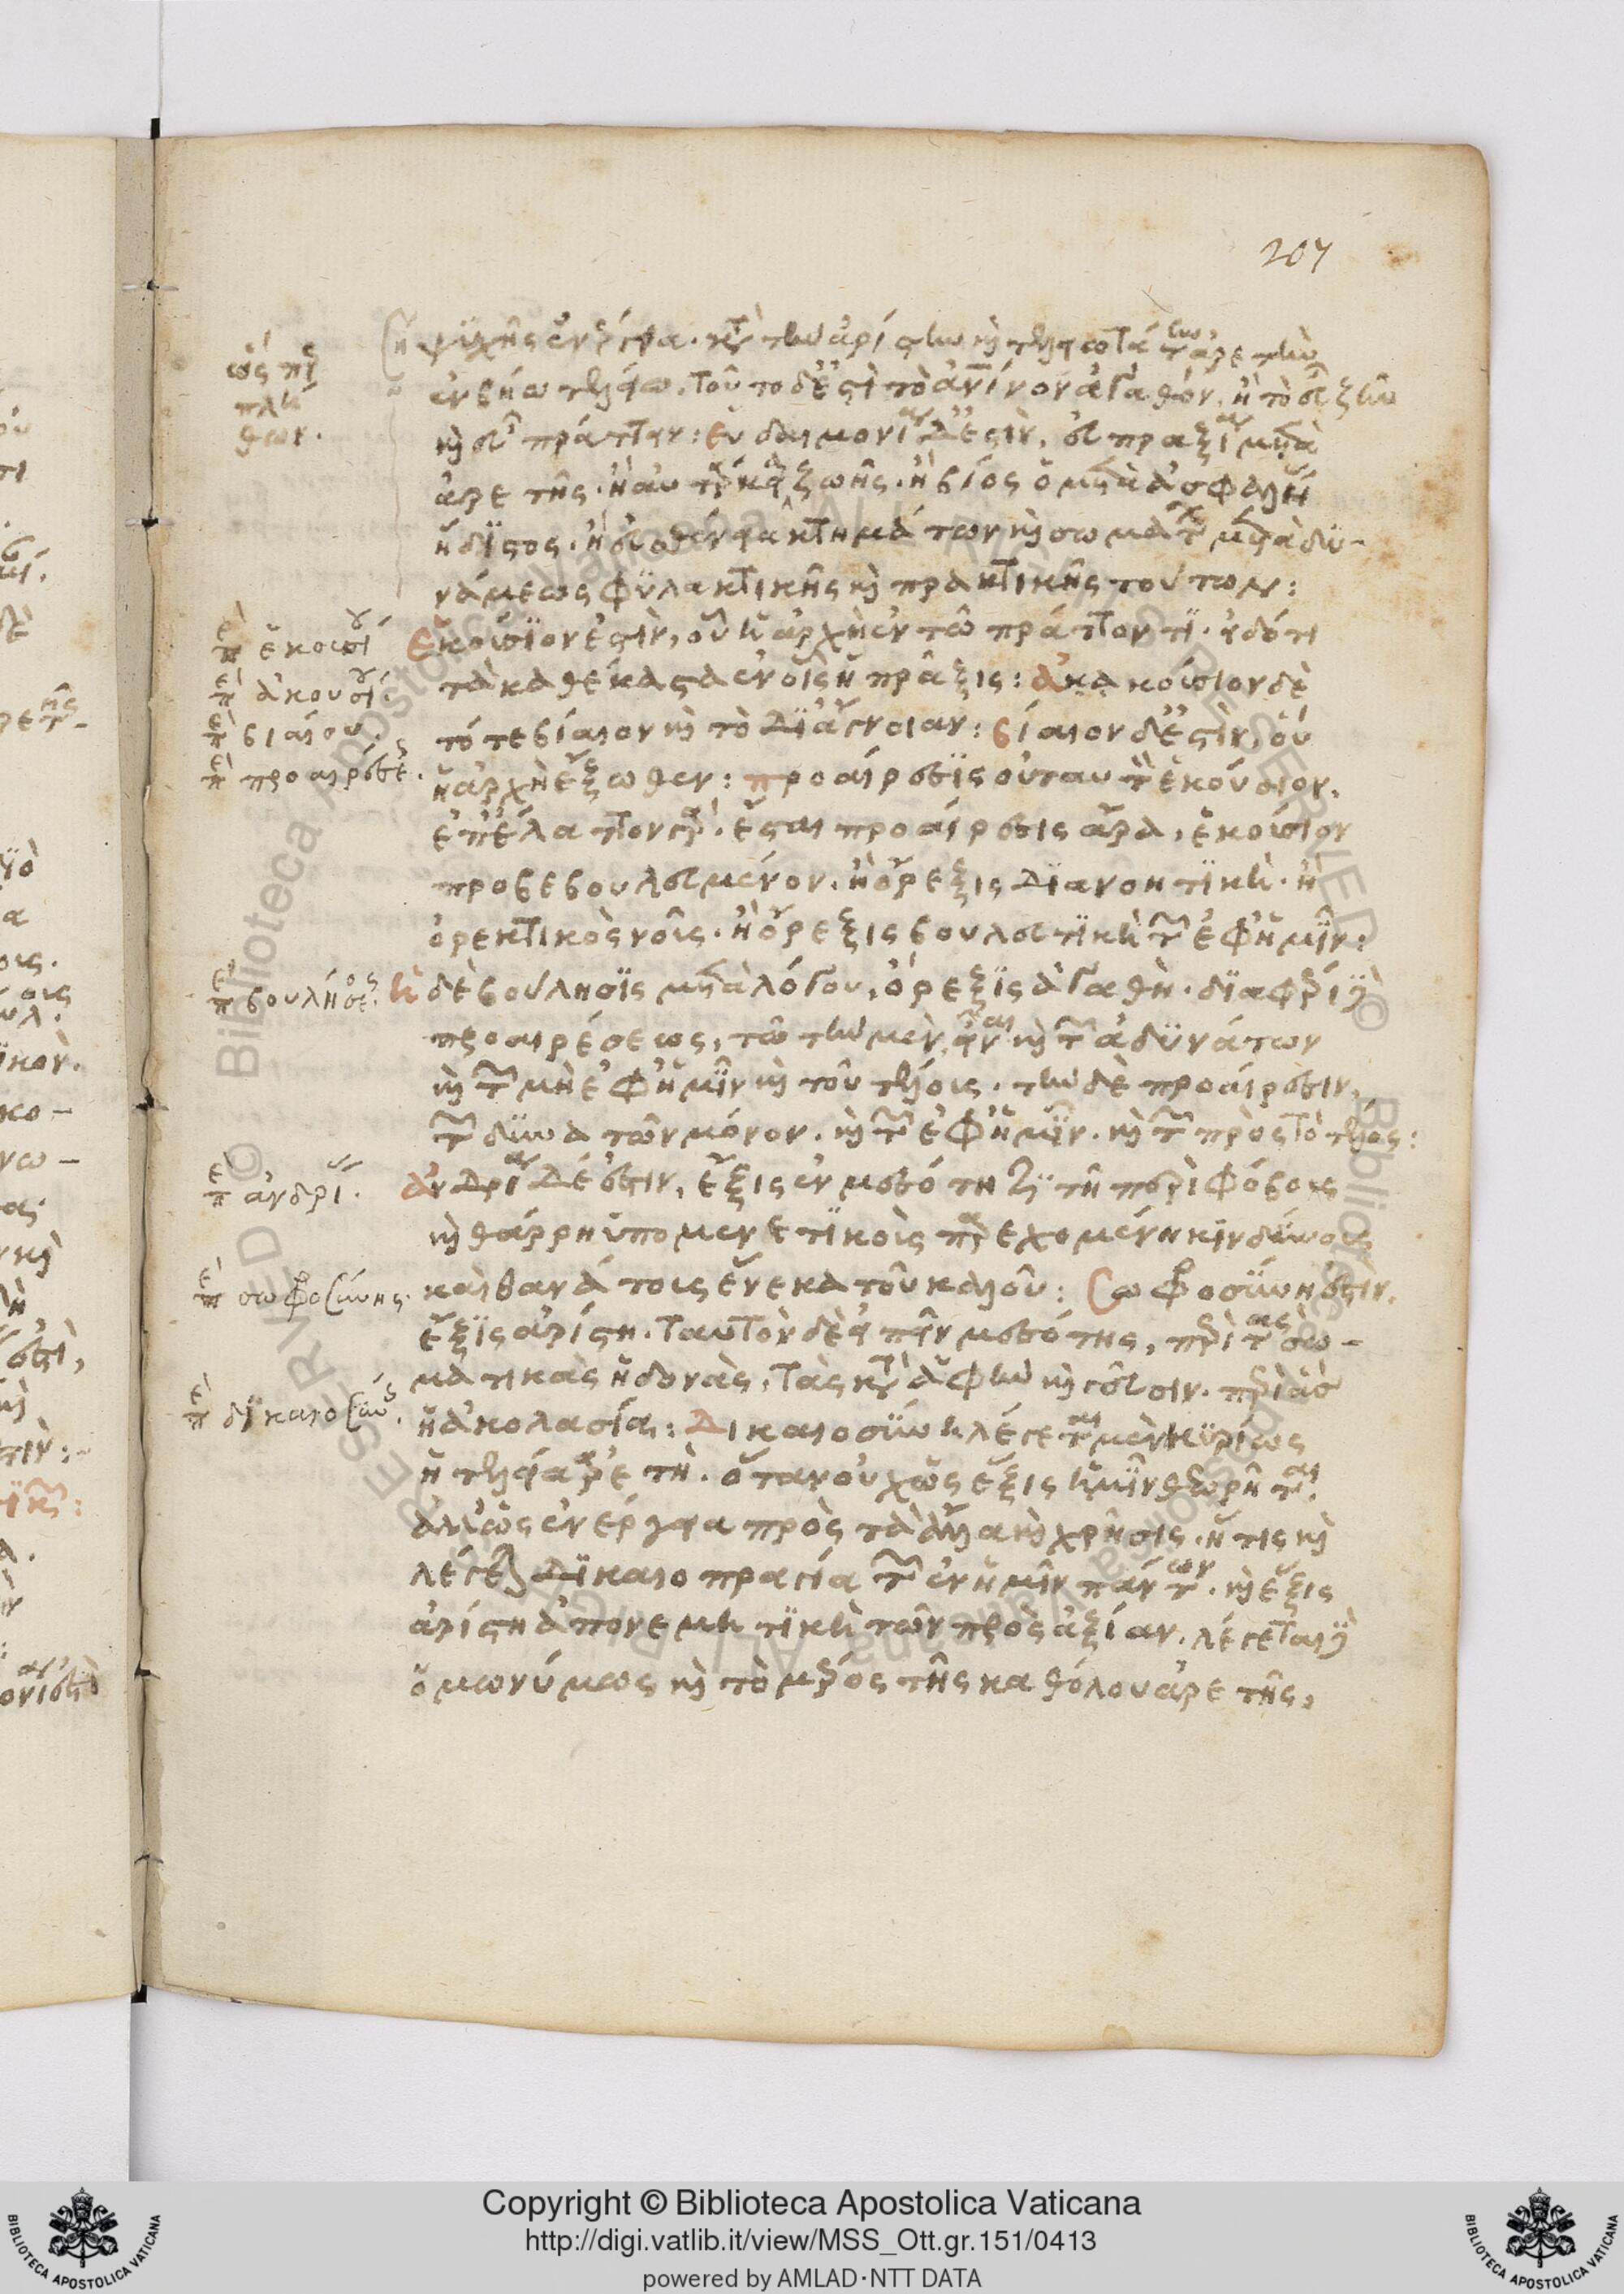 207
ψυχῆς ἐνέργεια· κατὰ τὴν ἀρίστην καὶ τελειοτάτην ἀρετὴν
ἐν βίῳ τελείῳ. τοῦτο δέ ἐστι τὸ ἀνθρώπινον ἀγαθόν, ἢ τὸ εὖ ζῆν
καὶ εὖ πράττειν: Εὐδαιμονία δέ ἐστιν, εὐπραξία μετὰ
ἀρετῆς· ἢ αὐτάρκεια ζωῆς· ἢ βίος ὁ μετὰ ἀσφαλείας
ἥδιστος· ἢ εὐθένεια κτημάτων καὶ σωμάτων μετὰ δυ-
νάμεως φυλακτικῆς καὶ πρακτικῆς τούτων:
Ἑκούσιον ἐστὶν, οὗ ἡ ἀρχὴ ἐν τῷ πράττοντι· εἰδότι
τὰ καθέκαστα ἐν οἷς ἡ πρᾶξις: ἀκούσιον δὲ
τό τε βίαιον καὶ τὸ δι' ἄγνοιαν: βίαιον δέ ἐστιν, οὗ
ἡ ἀρχὴ ἔξωθεν: προαίρεσις οὐ ταυτὸ ἑκούσιον.
ἐπ' ἔλαττον γάρ· ἔσται προαίρεσις ἄρα, ἑκούσιον
προβεβουλευμένον. ἢ ὄρεξις διανοητικὴ· ἢ
ὀρεκτικὸς νοῦς· ἢ ὄρεξις βουλευτικὴ τῶν ἐφ' ἡμῖν:
ἡ δὲ βούλησις μετὰ λόγου, ὄρεξις ἀγαθή· διαφέρει δὲ
προαιρέσεως, τῷ τὴν μὲν εἶναι καὶ τῶν ἀδυνάτων
καὶ τῶν μὴ ἐφ' ἡμῖν καὶ τοῦ τέλους· τὴν δὲ προαίρεσιν,
τῶν δυνατῶν μόνον. καὶ τῶν ἐφ' ἡμῖν. καὶ τῶν πρὸς τὸ τέλος:
ἀνδρία δέ ἐστιν, ἕξις ἐν μεσότητι τῇ περὶ φόβους
καὶ θάρρη ὑπομενετικοὺς παρεχομένη κινδύνους
καὶ θανάτοις ἕνεκα τοῦ καλοῦ: Σωφροσύνη ἐστιν,
ἕξις ἀρίστη. ταυτὸν δὲ εἰπεῖν μεσότης, περὶ τὰς σω-
ματικὰς ἡδονὰς, τὰς κατὰ ἁφὴν καὶ γεῦσιν. περὶ ἃς
ἡ ἀκολασία: Δικαιοσύνη λέγεται μὲν κυρίως
ἡ τελεία ἀρετή. ὅταν οὐχ ὡς ἕξις ἡμῖν θεωρῆται,
ἀλλ' ὡς ἐνέργεια πρὸς τὰ ἄλλα καὶ χρῆσις. ἥτις καὶ
λέγεται δικαιοπραγία τῶν ἐν ἡμῖν πάντων. καὶ ἕξις
ἀρίστη ἀπονεμητικὴ τῶν πρὸς ἀξίαν. λέγεται δὲ
ὁμωνύμως καὶ τὸ μέρος τῆς καθόλου ἀρετῆς,
περὶ ἑκουσίου
περὶ ἀκουσίου
περὶ βιαίου.
περὶ προαιρέσεως.
περὶ βουλήσεως.
περὶ ἀνδρίας.
περὶ σωφροσύνης.
περὶ δικαιοσύνης.
Copyright © Biblioteca Apostolica Vaticana
http://digi.vatlib.it/view/MSS_Ott.gr.151/0413
powered by AMLAD·NTT DATA
BIBLIOTECA APOSTOLICA VATICANA
BIBLIOTECA APOSTOLICA VATICANA